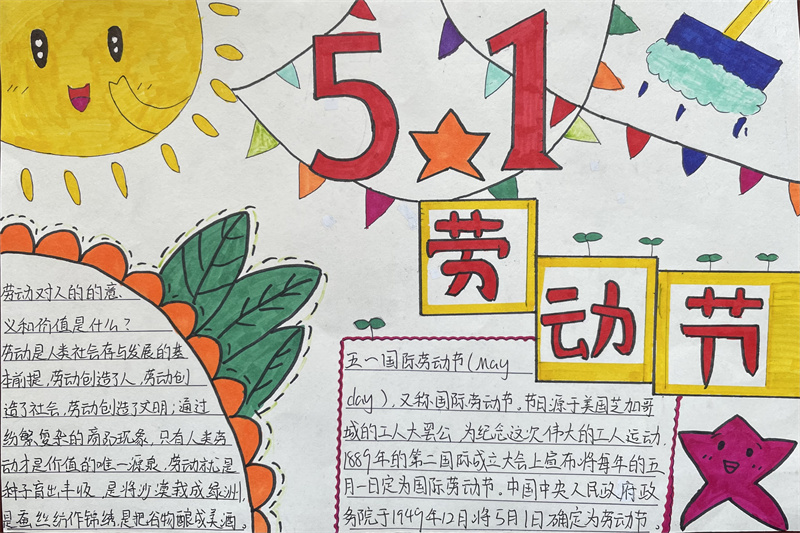 5.1
劳动节
劳动对人的的意
义和价值是什么?
劳动是人类社会存与发展的基
本前提,劳动创造了人,劳动创
造了社会,劳动创造了文明;通过
纷繁复杂的商品现象,只有人类劳
动才是价值的唯一源泉,劳动就是
种子育出丰收,是将沙漠栽成绿洲,
是蚕丝纺作锦绣,是把谷物酿成美酒。
五一国际劳动节(May
day),又称国际劳动节。节日源于美国芝加哥
城的工人大罢公,为纪念这次伟大的工人运动,
1889年的第二国际成立大会上宣布将每年的五
月一日定为国际劳动节。中国中央人民政府政
务院于1949年12月将5月1日确定为劳动节。